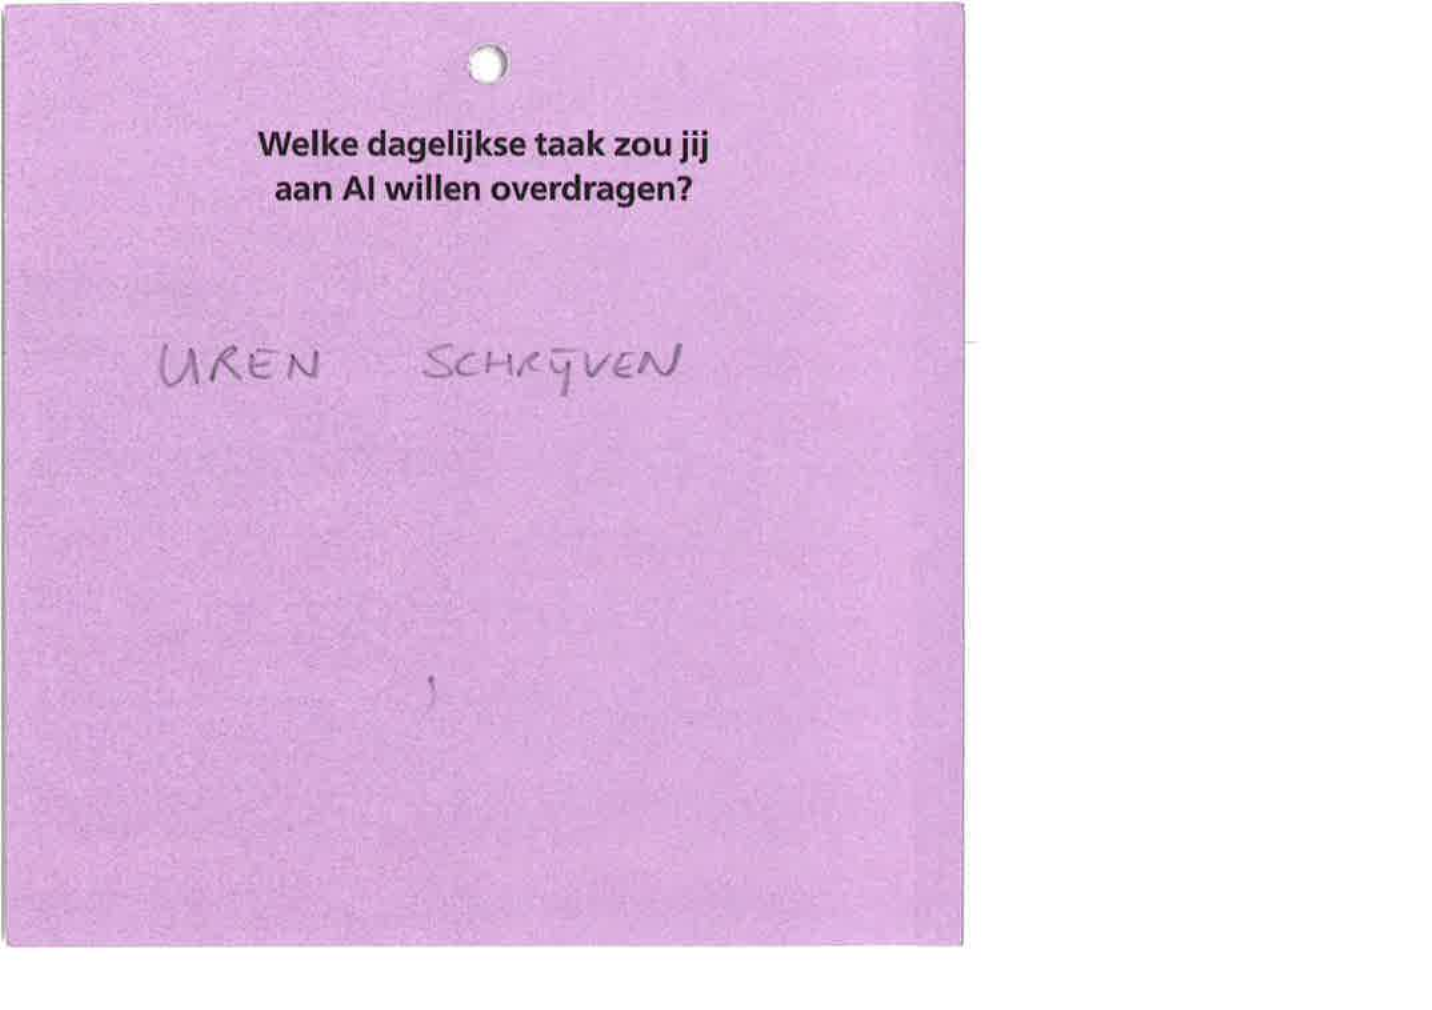 Welke dagelijkse taak zou jij
aan AI willen overdragen?
UREN SCHRIJVEN